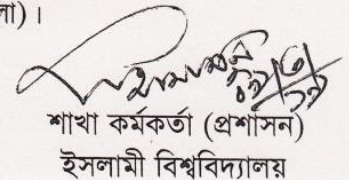 লা)।
শাখা কর্মকর্তা (প্রশাসন)
ইসলামী বিশ্ববিদ্যালয়